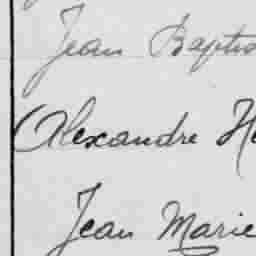 Jean Baptis
Alexandre He
Jean Marie